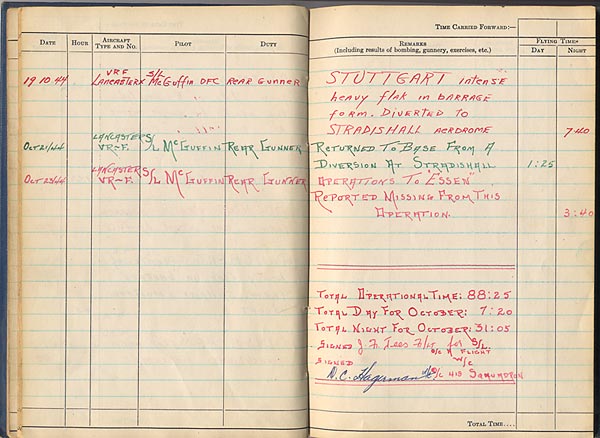 TIME CARRIED FORWARD:—
DATE HOUR AIRCRAFT TYPE AND NO. PILOT DUTY REMARKS (Including results of bombing, gunnery, exercises, etc.) FLYING TIMES DAY NIGHT
19.10.44 VRF LANCASTER X S/L McGuffin DFC REAR GUNNER STUTTGART intense
heavy flak in BARRAGE
form. DIVERTED to
STRADISHALL AERDROME 7:40
OCT 21/44 LANCASTER VR-F. S/L McGUFFIN REAR GUNNER RETURNED TO BASE FROM A
DIVERSION AT STRADISHALL 1:25
OCT 23/44 LANCASTER VR-F. S/L McGUFFIN REAR GUNNER OPERATIONS TO "ESSEN"
REPORTED MISSING FROM THIS
OPERATION. 3:40
TOTAL OPERATIONAL TIME: 88:25
TOTAL DAY FOR OCTOBER: 7:20
TOTAL NIGHT FOR OCTOBER: 31:05
SIGNED J. F. Lees F/Lt for S/L.
O/C A FLIGHT
SIGNED W/C
D.C. Hagerman W/C O/C 419 SQUADRON
TOTAL TIME....